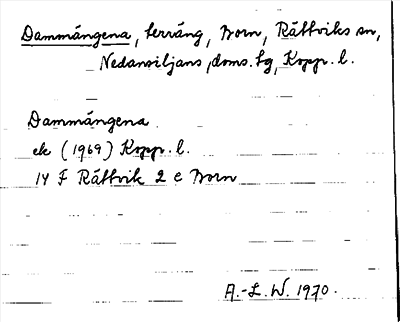 Dammängena, terräng, Born, Rättviks sn,
Nedansiljans doms. tg, Kopp. l.
Dammängena
ek (1969) Kopp. l.
14 F Rättvik 2 c Born
A.-L. W. 1970.